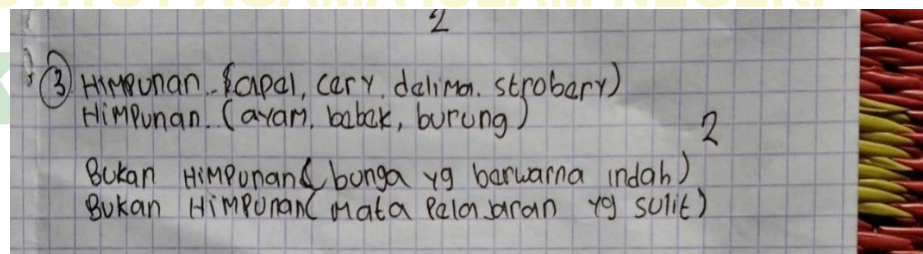 INSTITUT AGAMA ISLAM NEGERI
2
③ Himpunan {apel, cery, delima, strobery)
Himpunan (ayam, bebek, burung)
2
Bukan Himpunan ( bunga yg berwarna indah)
Bukan Himpunan ( Mata Pelajaran yg sulit)